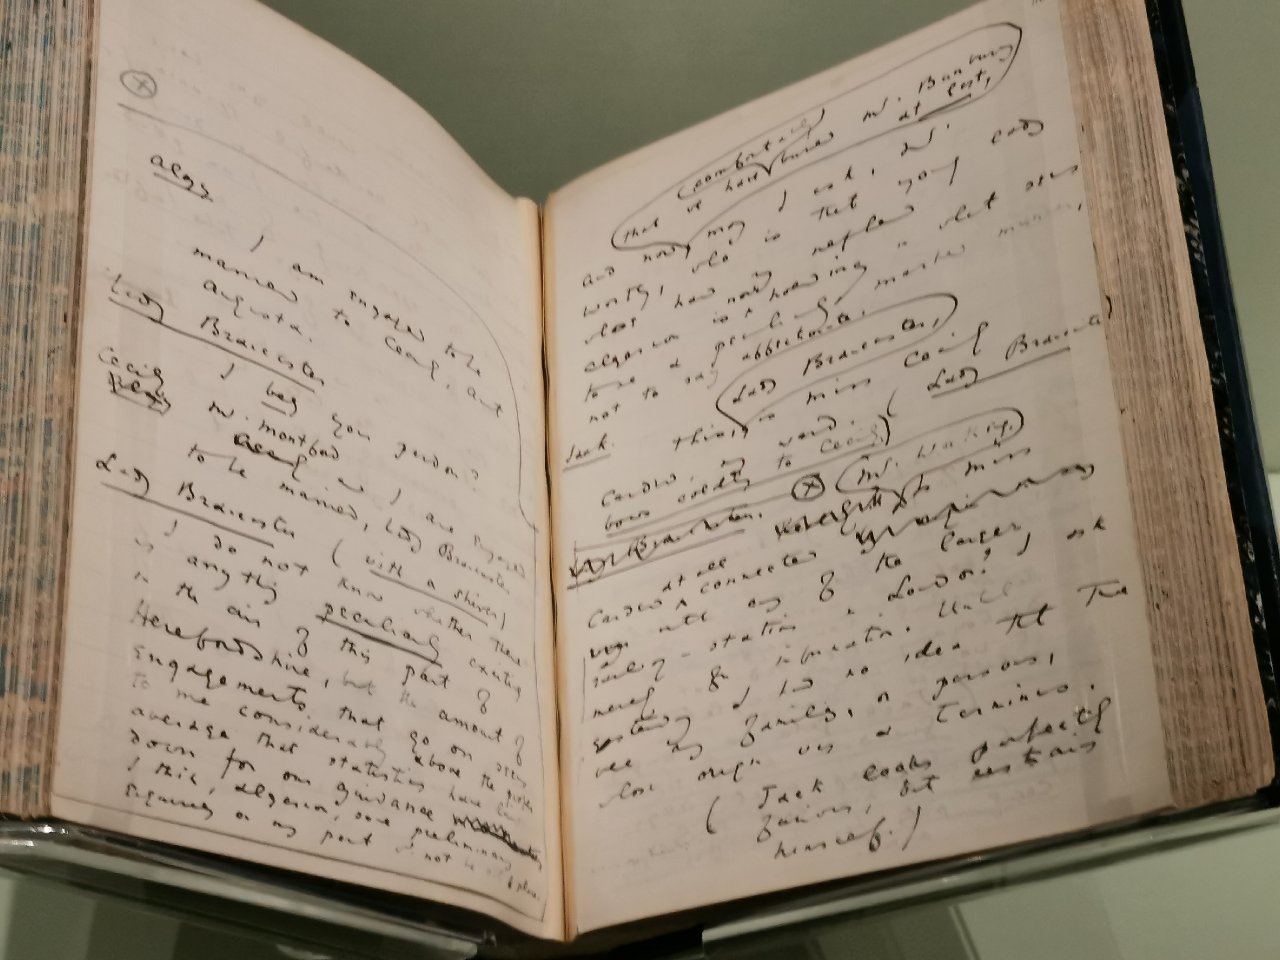 Algy
I am engaged to be
married to Cecily, Aunt
Augusta.
Lady Brancaster
I beg your pardon?
Cecily
Mr. Montford and I are engaged
to be married, Lady Brancaster.
Lady Brancaster (with a shiver)
I do not know whether there
is anything peculiarly exciting
in the air of this part of
Herefordshire, but the amount of
engagements that go on seems
to me considerably above the proper
average that statistics have laid
down for our guidance
I think, Algernon, some preliminary
enquiry on my part is not out of place.
that we have (comfortably) buried Mr. Bunbury
at last,
and now, may I ask, Mr.
Worthing, who is that young lady
whose hand my nephew
Algernon is now holding in what seems
to me a peculiarly marked manner,
not to say affectionate.
(Lady Brancaster,)
Jack. This, is Miss Cecily
Cardew, my ward. (Lady Brancaster
bows coldly to Cecily)
Lady Brancaster. (Mr. Worthing,) is Miss
Cardew at all connected
with any of the larger
railway-stations in London? I ask
merely for information. Until
yesterday I had no idea that there
were any families, or persons,
whose origin was a Terminus.
(Jack looks perfectly
furious, but restrains
himself.)